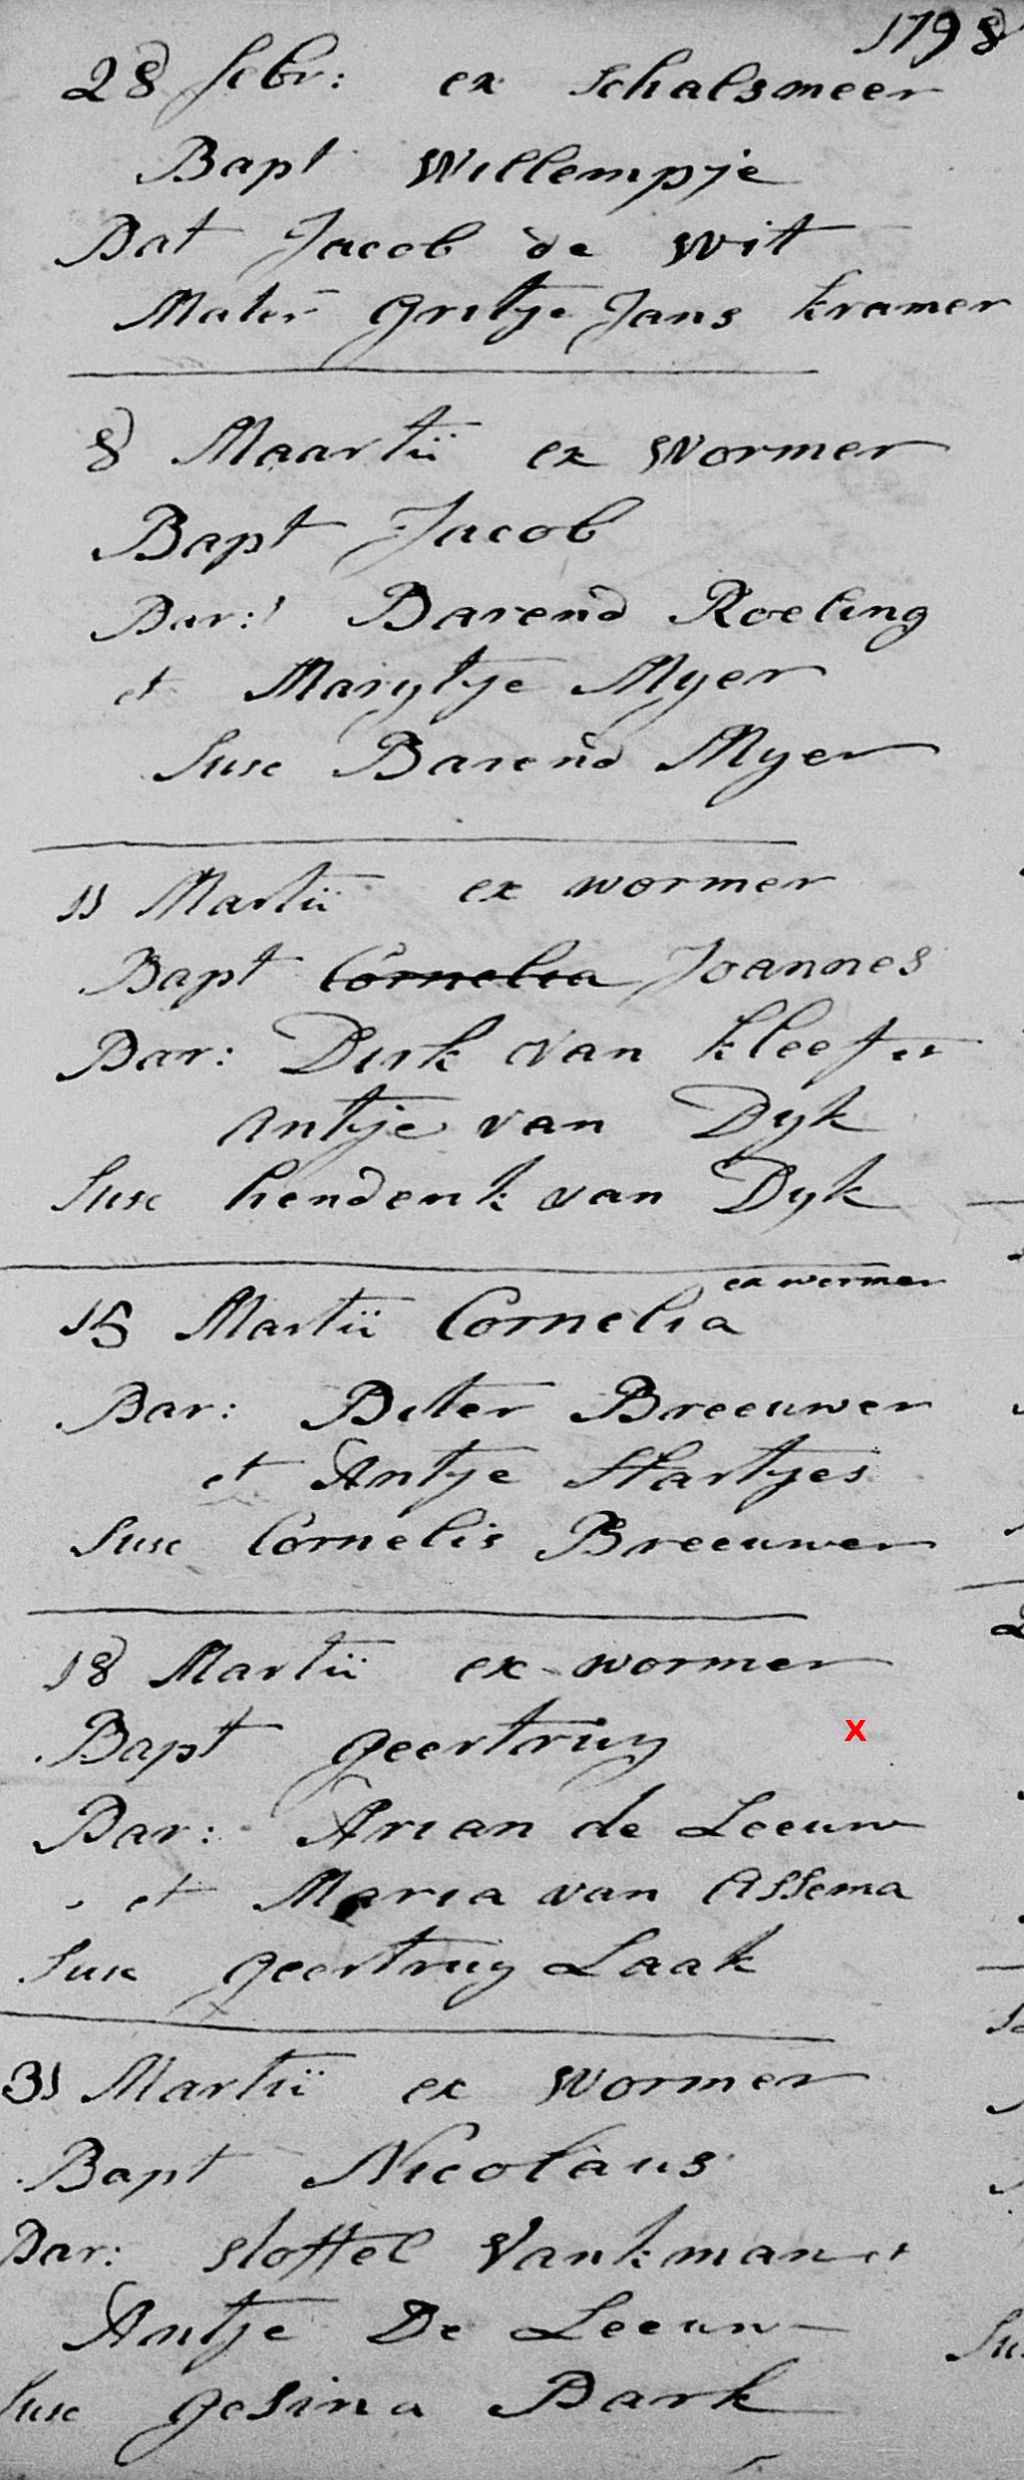 1798
28 febr: ex Schalsmeer
Bapt Willempje
Pat Jacob de wit
Mater Gritje Jans kramer
8 Maartii ex Wormer
Bapt Jacob
Par: Barend Roeling
et Marytje Myer
Susc Barend Myer
11 Martii ex wormer
Bapt Cornelia Joannes
Par: Dirk van kleef et
Antje van Dyk
Susc henderik van Dyk
ex wormer
15 Martii Cornelia
Par: Piter Breeuwer
et Antje Hartjes
Susc Cornelis Breeuwer
18 Martii ex wormer
Bapt geertruy x
Par: Arian de Leeuw
et Maria van Assema
Susc geertruy Laak
31 Martii ex Wormer
Bapt Nicolaus
Par: stoffel Vankman et
Antje De Leeuw
Susc gesina Bark